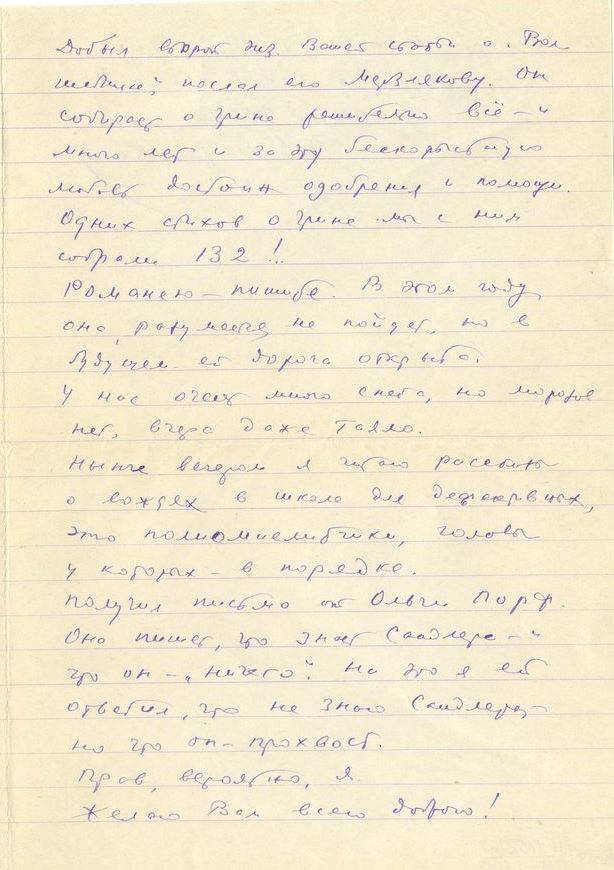 Добыл второй экз. Вашей статьи о „Вол
шебнике", послал его Мерзлякову. Он
собирает о Грине решительно всё – и
много лет и за эту бескорыстную
любовь достоин одобрения и помощи.
Одних стихов о Грине мы с ним
собрали 132!..
Романею – пишите. В этом году
она, разумеется, не пойдет, но в
будущем ей дорога открыта.
У нас очень много снега, но морозов
нет, вчера даже таяло.
Нынче вечером я читаю рассказы
о вождях в школе для дефективных,
это полиомиелитики, головы
у которых – в порядке.
Получил письмо от Ольги Порф.
Она пишет, что знает Сандлера – и
что он – „ничего". На это я ей
ответил, что не знаю Сандлера, –
но что он – прохвост.
Прав, вероятно, я.
Желаю Вам всего доброго!